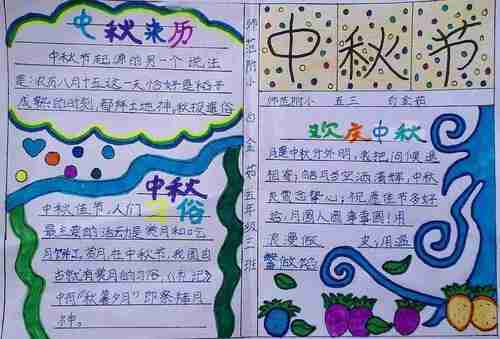 中秋来历
中秋节起源的另一个说法
是:农历八月十五这一天恰好是稻子
成熟的时刻,都拜土地神,秋报遗俗
中秋
习俗
中秋佳节,人们
最主要的活动是赏月和吃
月饼了。赏月,在中秋节,我国自
古就有赏月的习俗,《礼记》
中有"秋暮夕月"即祭拜月
神。
师范附小 白金茹 五年级三班
中秋节
师范附小 五三 白金茹
欢庆中秋
月是中秋分外明,我把问候遥
相寄;皓月当空洒清辉,中秋
良宵念挚心;祝愿佳节多好
给,月圆人圆事事圆!用
浪漫做 皮,用温
馨做馅